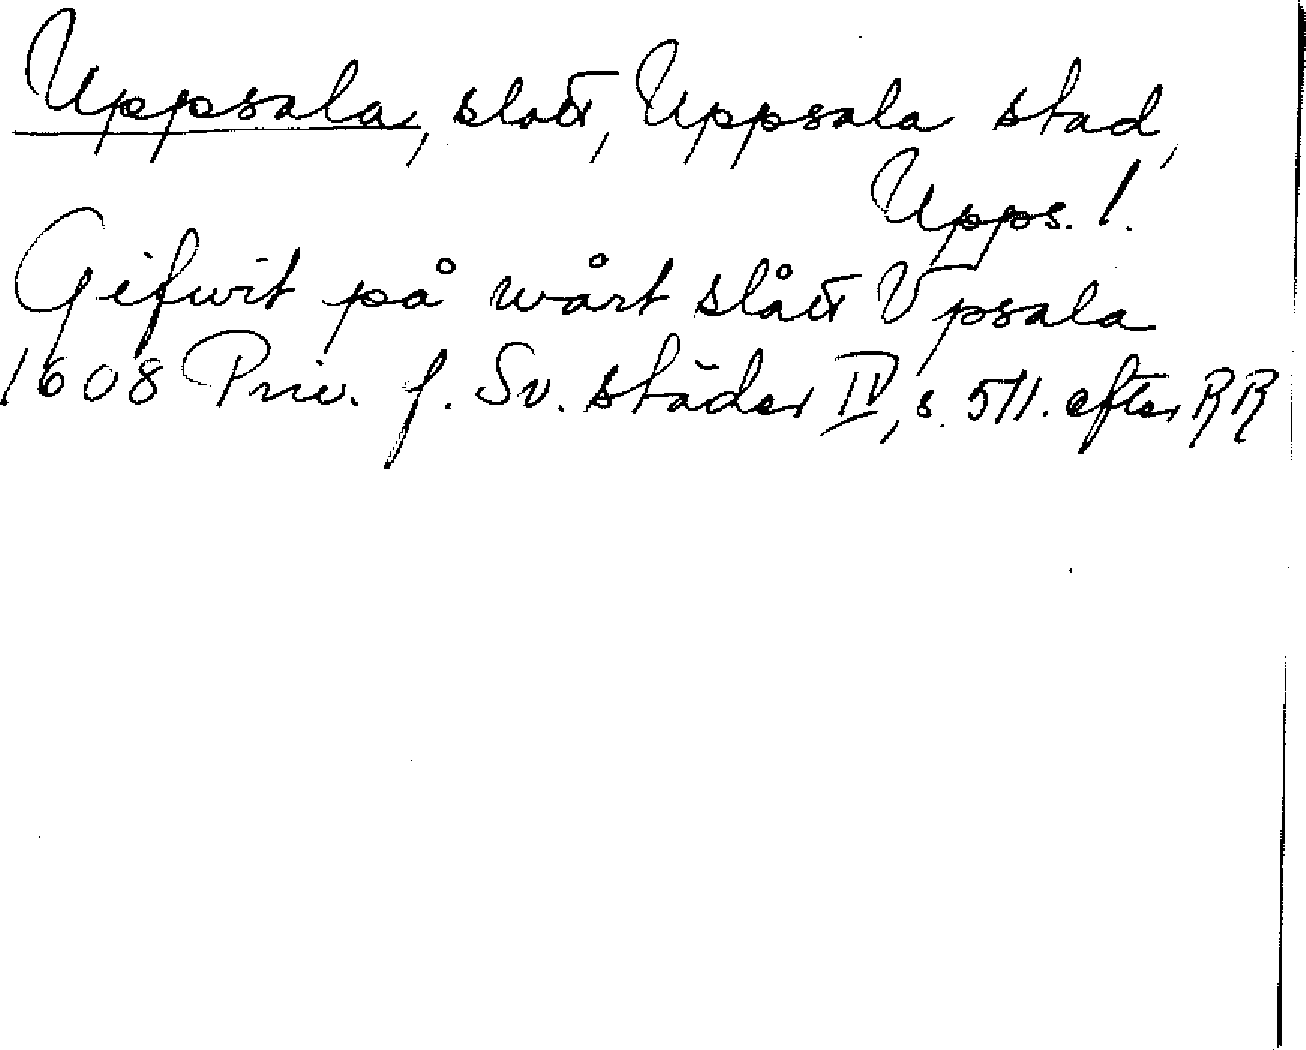 Uppsala, slott, Uppsala stad,
Upps. l.
Gifwit på wårt slått Vpsala
1608 Priv. f. Sv. städer IV, s. 511. efter RR